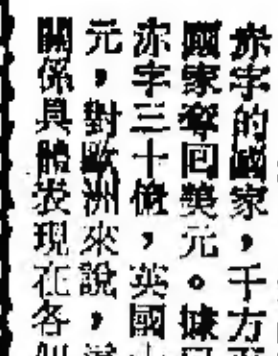 赤字的國家，千方
國家奪回美元。據
赤字三十億，英國
元，對歐洲來說，
關係具體表現在各